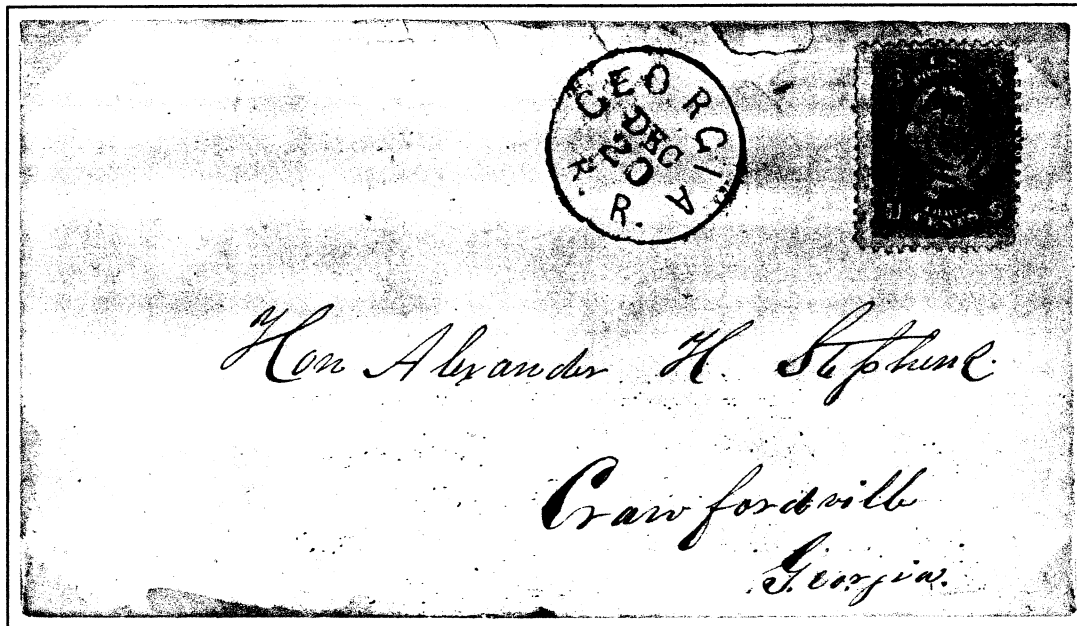 GEORGIA
DEC
20
R. R.
Hon Alexander H. Stephens.
Crawfordville
Georgia.